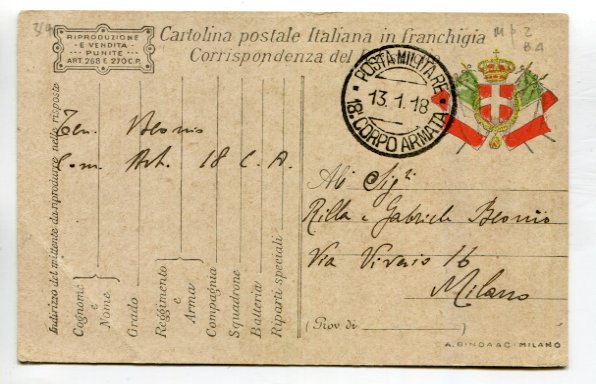 RIPRODUZIONE
E VENDITA
PUNITE
ART. 268 E 270 C.P.
Cartolina postale Italiana in franchigia
Corrispondenza del
POSTA MILITARE
13.1.18
18. CORPO ARMATA
Indirizzo del mittente da riprodurre nelle risposte
Ten. Beonio
Com. Art. 18 C. A.
Cognome
e
Nome
Grado
Reggimento
e
Arma
Compagnia
Squadrone
Batteria
Riparti speciali
Sig.ri
Rilla e Gabriele Beonio
Via Vivaio 16
Milano
(Prov. di )
A. BINDA & C. MILANO